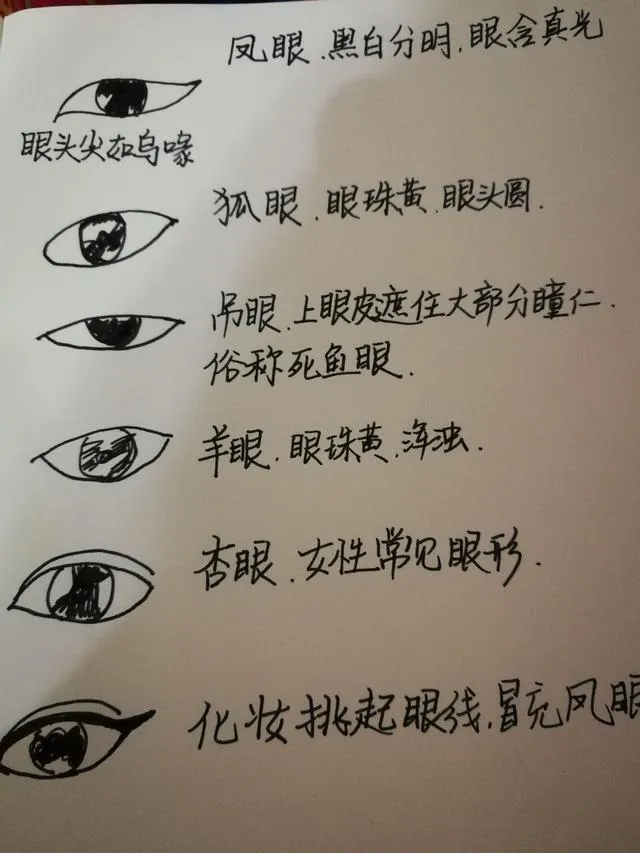 凤眼.黑白分明.眼含真光
眼头尖如鸟喙
狐眼.眼珠黄.眼头圆.
吊眼.上眼皮遮住大部分瞳仁.
俗称死鱼眼.
羊眼.眼珠黄.浑浊.
杏眼.女性常见眼形.
化妆挑起眼线.冒充凤眼